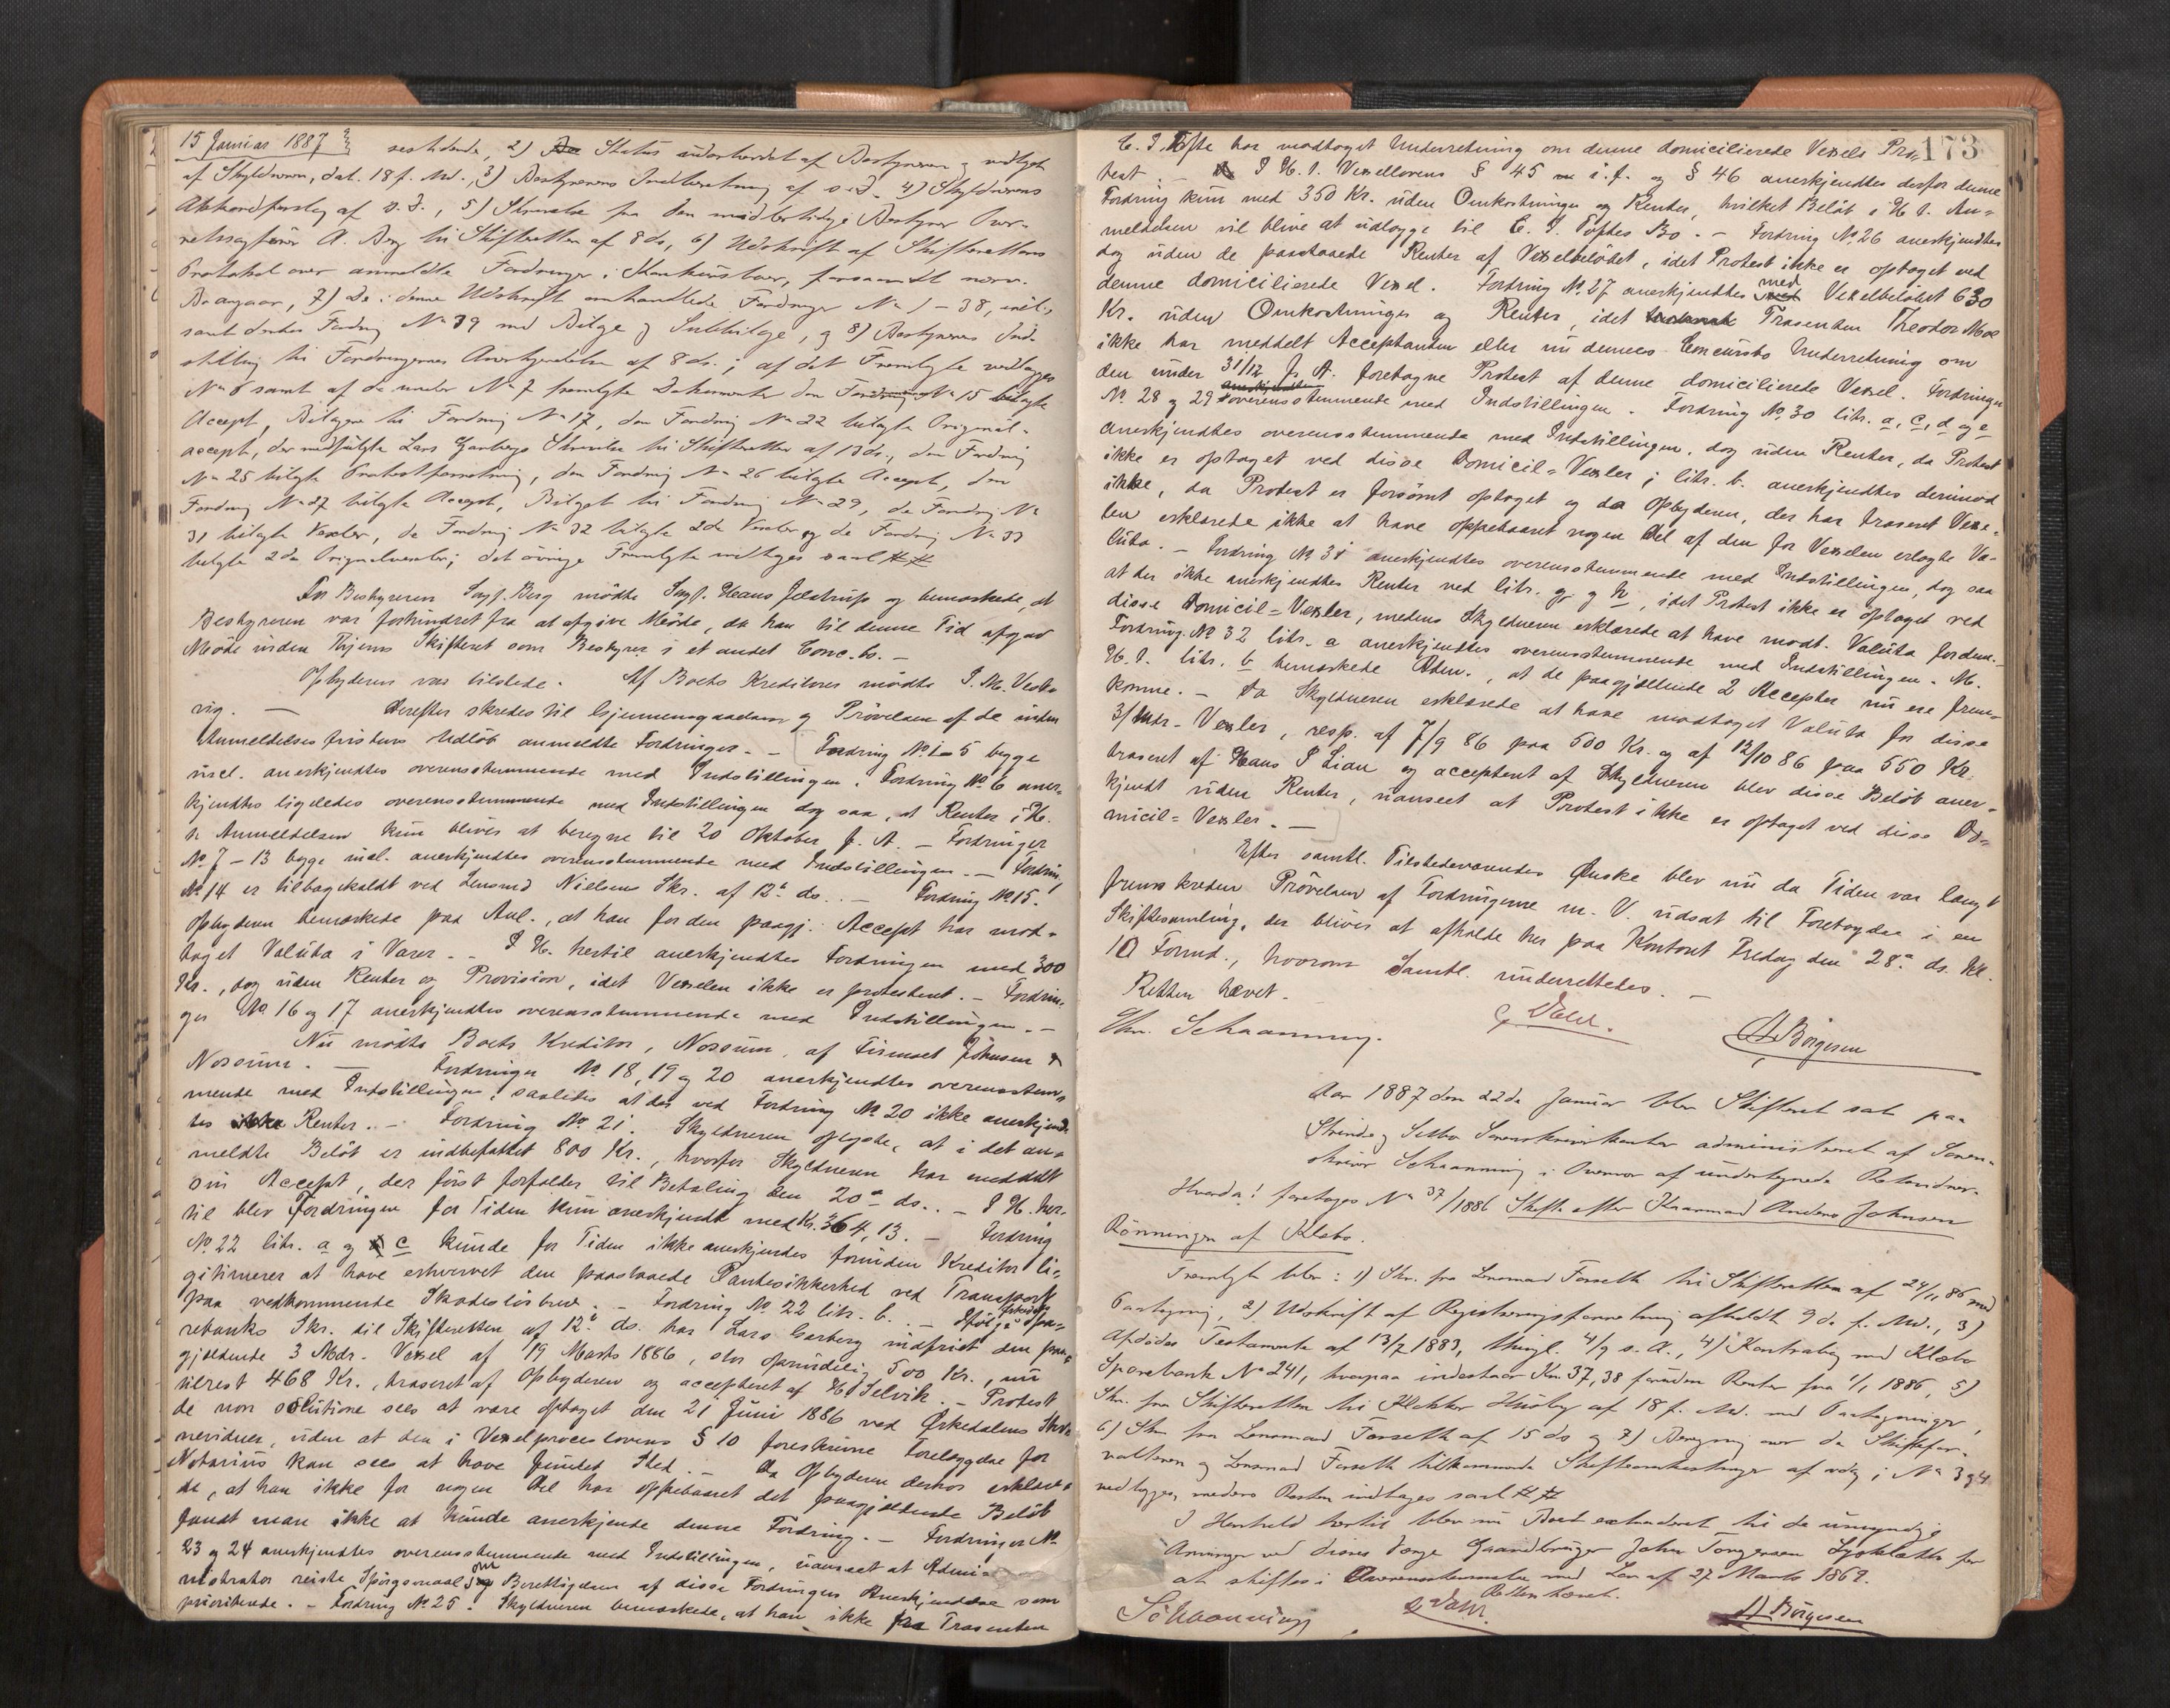 15 Januar 1887
restidende, 2) Status udarbeidet af Bestyreren og vedtaget
af Skyldneren, dat. 18 f. Md., 3) Bestyrerens Indberetning af s. D. 4) Skyldnerens
Akkordforslag af s. D., 5) Skrivelse fra den midlertidige Bestyrer Over-
retssagfører A. Berg til Skifteretten af 8 ds., 6) Udskrift af Skifterettens
Protokol over anmeldte Fordringer i Konkursboer, forsaavidt nærv.
Bo angaar, 7) De i denne Udskrift omhandlede Fordringer No 1 – 38, incl.,
samt Fordring No 39 med Bilag og Subbilage, og 8) Bestyrerens Ind-
stilling til Fordringernes Anerkjendelse af 8 ds.; af det Fremlagte vedlægges
No 6 samt af de under No 7 fremlagte Dokumenter den Fordring No 15 bilagte
Accept, Bilagene til Fordring No 17, den Fordring No 22 bilagte Original-
accept, der medfulgte Lars Garbergs Skrivelse til Skifteretten af 12 ds., den Fordring
No 25 bilagte Protestforretning, den Fordring No 26 bilagte Accept, den
Fordring No 27 bilagte Accept, Bilaget til Fordring No 29, de Fordring No
31 bilagte Vexler, de Fordring No 32 bilagte 2de Vexler og de Fordring No 33
bilagte 2de Originalvexler; det øvrige Fremlagte indtages saal.
For Bestyreren Sagf. Berg mødte Sagf. Hans Jelstrup og bemærkede, at
Bestyreren var forhindret fra at afgive Møde, da han til denne Tid afgav
Møde inden Hjems Skifteret som Bestyrer i et andet Conc.bo. –
Opbyderen var tilstede. Af Boets Kreditorer mødte I. M. Vestvig
vig. – Derefter skredes til Gjennemgaaelsen og Prøvelsen af de inden
Anmeldelsesfristens Udløb anmeldte Fordringer. – Fordring No 1–5 begge
incl. anerkjendtes overensstemmende med Indstillingen. Fordring No 6 aner-
kjendtes ligeledes overensstemmende med Indstillingen dog saa, at Renter i H.
t. Anmeldelsen kun bliver at beregne til 20 Oktober f. A. – Fordringer
No 7 – 13 begge incl. anerkjendtes overensstemmende med Indstillingen. – Fordring
No 14 er tilbagekaldt ved Lensmd Nielsens Skr. af 12te ds. – Fordring No 15.
Opbyderen bemærkede paa Anl., at han for den paagj. Accept har mod-
taget Valuta i Varer. – I H. hertil anerkjendtes Fordringen med 300
Kr., dog uden Renter og Provision, idet Vexelen ikke er protesteret. – Fordrin-
ger No 16 og 17 anerkjendtes overensstemmende med Indstillingen. –
Nu mødte Boets Kreditor, Nossum, af Firmaet Johnsen &
Nossum. – Fordringer No 18, 19 og 20 anerkjendtes overensstem-
mende med Indstillingen, saaledes at der ved Fordring No 20 ikke anerkjend-
tes Renter. – Fordring No 21. Skyldneren oplyste, at i det an-
meldte Beløb er indbefattet 800 Kr., hvorfor Skyldneren har meddelt
sin Accept, der først forfalder til Betaling den 20de ds. – I H. her-
til blev Fordringen for Tiden kun anerkjendt med Kr. 364,13. – Fordring
No 22 litr. a og c kunde for Tiden ikke anerkjendes forinden Kreditor le-
gitimerer at have erhvervet den paastaaede Pantesikkerhed ved Transport
paa vedkommende Skadesløsbrev. – Fordring No 22 litr. b. – Ifølge Spa-
rebanks Skr. til Skifteretten af 12te ds. har Lars Garberg indfriet den paa-
gjældende 3 Mdr. Vexel af 19 Marts 1886, stor oprindelig 500 Kr., nu
tilrest 468 Kr., traseret af Opbyderen og accepteret af H. Selvik. – Protest
de non solutione sees at være optaget den 21 Juni 1886 ved Ørkedalens
nevidner, uden at den i Vexelproceslovens § 10 foreskrevne Forelæggelse for
Notarius kan sees at have fundet Sted. – Da Opbyderen derhos erklære-
de, at han ikke for nogen Del har oppebaaret det paagjældende Beløb
fandt man ikke at kunde anerkjende denne Fordring. – Fordringer No
23 og 24 anerkjendtes overensstemmende med Indstillingen, uanseet at Admi-
nistrator reiste Spørgsmaal om Berettigelsen af disse Fordringers Anerkjendelse som
prioriterede. – Fordring No 25. Skyldneren bemærkede, at han ikke fra Trasenten
173
E. I. Tofte har modtaget Underretning om denne domicilierede Vexels Pro-
test. – I H. t. Vexellovens § 45 i. f. og § 46 anerkjendtes derfor denne
Fordring kun med 350 Kr. uden Omkostninger og Renter, hvilket Beløb i H. t. An-
meldelsen vil blive at udlægge til E. I. Toftes Bo. – Fordring No 26 anerkjendtes
dog uden de paastaaede Renter af Vexelbeløbet, idet Protest ikke er optaget ved
denne domicilierede Vexel. Fordring No 27 anerkjendtes med Vexelbeløbet 630
Kr. uden Omkostninger og Renter, idet Trasenten Theodor Moe
ikke har meddelt Acceptanten eller nu dennes Concursbo Underretning om
den under 31/12 f. A. foretagne Protest af denne domicilierede Vexel. Fordringer
No 28 og 29 anerkjendtes overensstemmende med Indstillingen. Fordring No 30 litr. a, c, d og e
anerkjendtes overensstemmende med Indstillingen, dog uden Renter, da Protest
ikke er optaget ved disse Domicil-Vexler; litr. b. anerkjendtes derimod
ikke, da Protest er forsømt optaget og da Opbyderen, der har traseret Vexe-
len erklærede ikke at have oppebaaret nogen Del af den for Vexelen erlagte Va-
luta. – Fordring No 31 anerkjendtes overensstemmende med Indstillingen, dog saa
at der ikke anerkjendtes Renter ved litr. g og h, idet Protest ikke er optaget ved
disse Domicil-Vexler, medens Skyldneren erklærede at have modt. Valuta fordem.
Fordring No 32 litr. a anerkjendtes overensstemmende med Indstillingen. M.
H. t. litr. b bemærkede Adm., at de paagjældende 2 Accepter nu ere frem-
komne. – Da Skyldneren erklærede at have modtaget Valuta for disse
3/Mdr-Vexler, resp. af 7/9 86 paa 500 Kr. og af 12/10 86 paa 550 Kr.
traseret af Hans P Lian og accepteret af Skyldneren blev disse Beløb aner-
kjendt uden Renter, uanseet at Protest ikke er optaget ved disse Do-
micil-Vexler. –
Efter samtl. Tilstedeværendes Ønske blev nu da Tiden var langt
fremskreden Prøvelsen af Fordringerne m. V. udsat til Foretagelse i en
Skiftesamling, der bliver at afholde her paa Kontoret Fredag den 28de ds. Kl.
10 Formd., hvorom Samtl. underrettedes. –
Retten hævet.
Schaanning.
G Dahl.
A Børgesen
Aar 1887 den 22de Januar blev Skifteret sat paa
Strinde og Selbo Sorenskriverkontor administreret af Soren-
skriver Schaanning i Overvær af undertegnede Retsvidner.
Hvorda! foretoges No 37/1886 Skifte efter Kaarmand Anders Johnsen
Rønningen af Klæbo.
Fremlagte blev: 1) Skr. fra Lensmand Forseth til Skifteretten af 24/11 86 med
Paategning, 2) Udskrift af Registreringsforretning afholdt 9de f. Md., 3)
Afdødes Testamente af 13/7 1883, thingl. 4/9 s. A., 4) Kontrabog med Klæbo
Sparebank No 241, hvorpaa indestaar Kr. 37,38 foruden Renter fra 1/1 1886, 5)
Skr. fra Skifteretten til Klokker Huseby af 18 f. Md. med Paategninger,
6) Skr. fra Lensmand Forseth af 15 ds og 7) Beregning over de Skiftefor-
valteren og Lensmand Forseth tilkommende Skifteomkostninger af hvilke No 3 og 4
vedlægges, medens Resten indtages saal.
I Henhold hertil blev nu Boet extraderet til de umyndige
Arvinger ved deres Værge Gaardbruger John Torgersen Lysklætt for
at skiftes i Overensstemmelse med Lov af 27 Marts 1869.
Retten hævet.
Schaanning
G Dahl.
A Børgesen